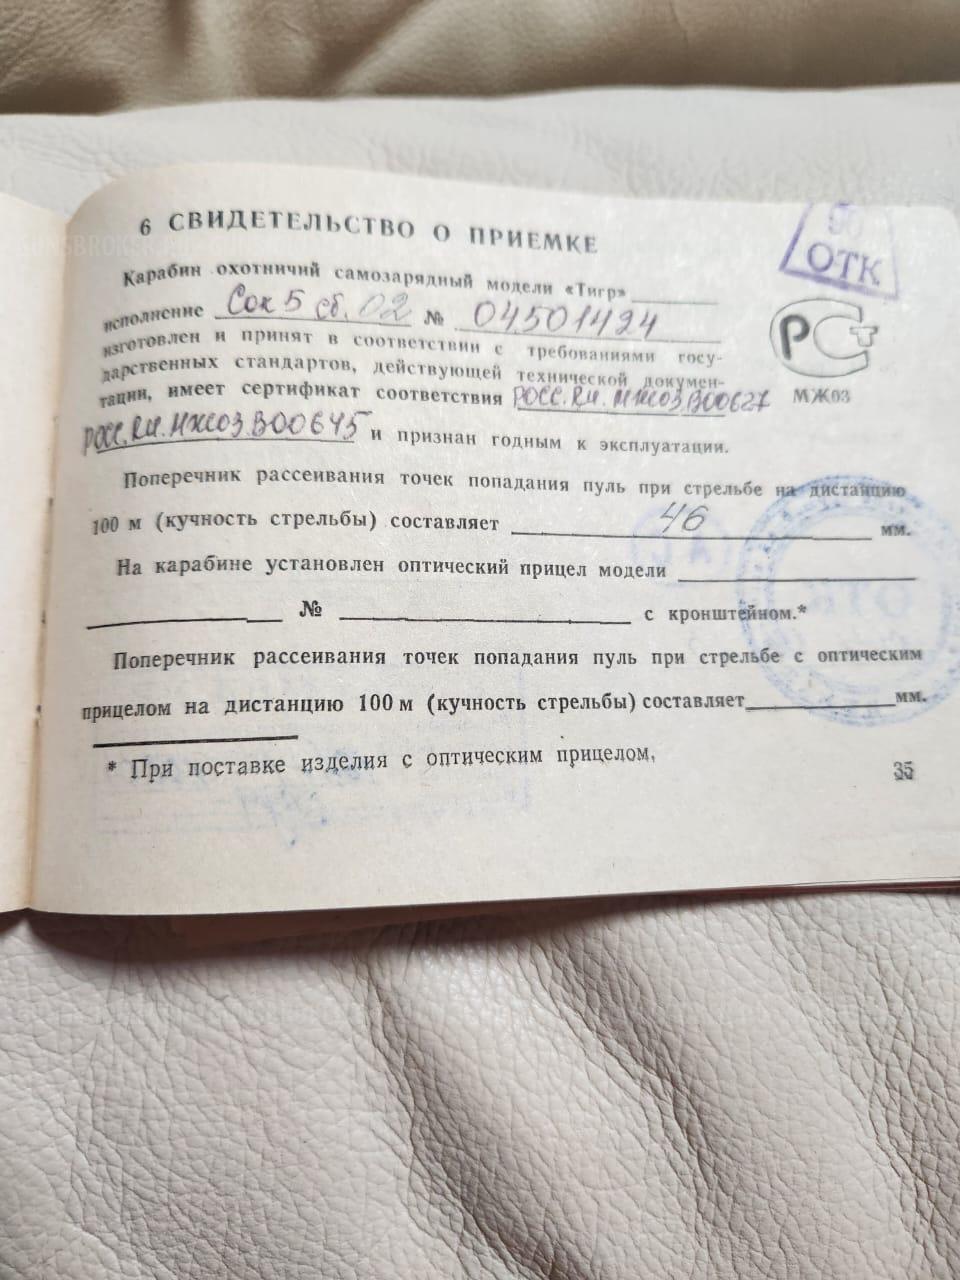 6 СВИДЕТЕЛЬСТВО О ПРИЕМКЕ
90
ОТК
Карабин охотничий самозарядный модели «Тигр»
исполнение Сок 5 сб. 02 № 04501494
изготовлен и принят в соответствии с требованиями госу-
дарственных стандартов, действующей технической докумен-
тации, имеет сертификат соответствия РОСС.RU.МЖ03.В00627
РСТ
МЖ03
РОСС.RU.МЖ03.В00645 и признан годным к эксплуатации.
Поперечник рассеивания точек попадания пуль при стрельбе на дистанцию
100 м (кучность стрельбы) составляет 46 мм.
На карабине установлен оптический прицел модели
№ с кронштейном.*
Поперечник рассеивания точек попадания пуль при стрельбе с оптическим
прицелом на дистанцию 100 м (кучность стрельбы) составляет мм.
* При поставке изделия с оптическим прицелом,
35